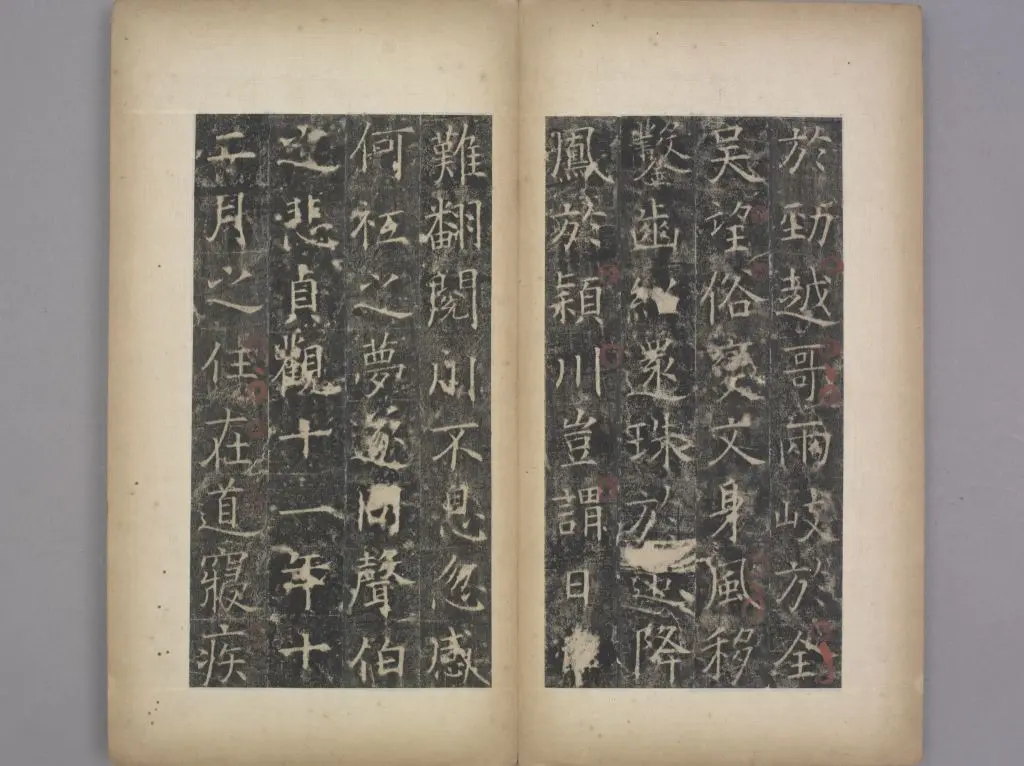 於勁越哥兩岐於全
吳望俗變文身風移
鑿齒還珠於降
鳳於穎川豈謂日
難翻閱川不息忽感
何祗之夢遽同聲伯
之悲貞觀十一年十
二月之任在道寢疾